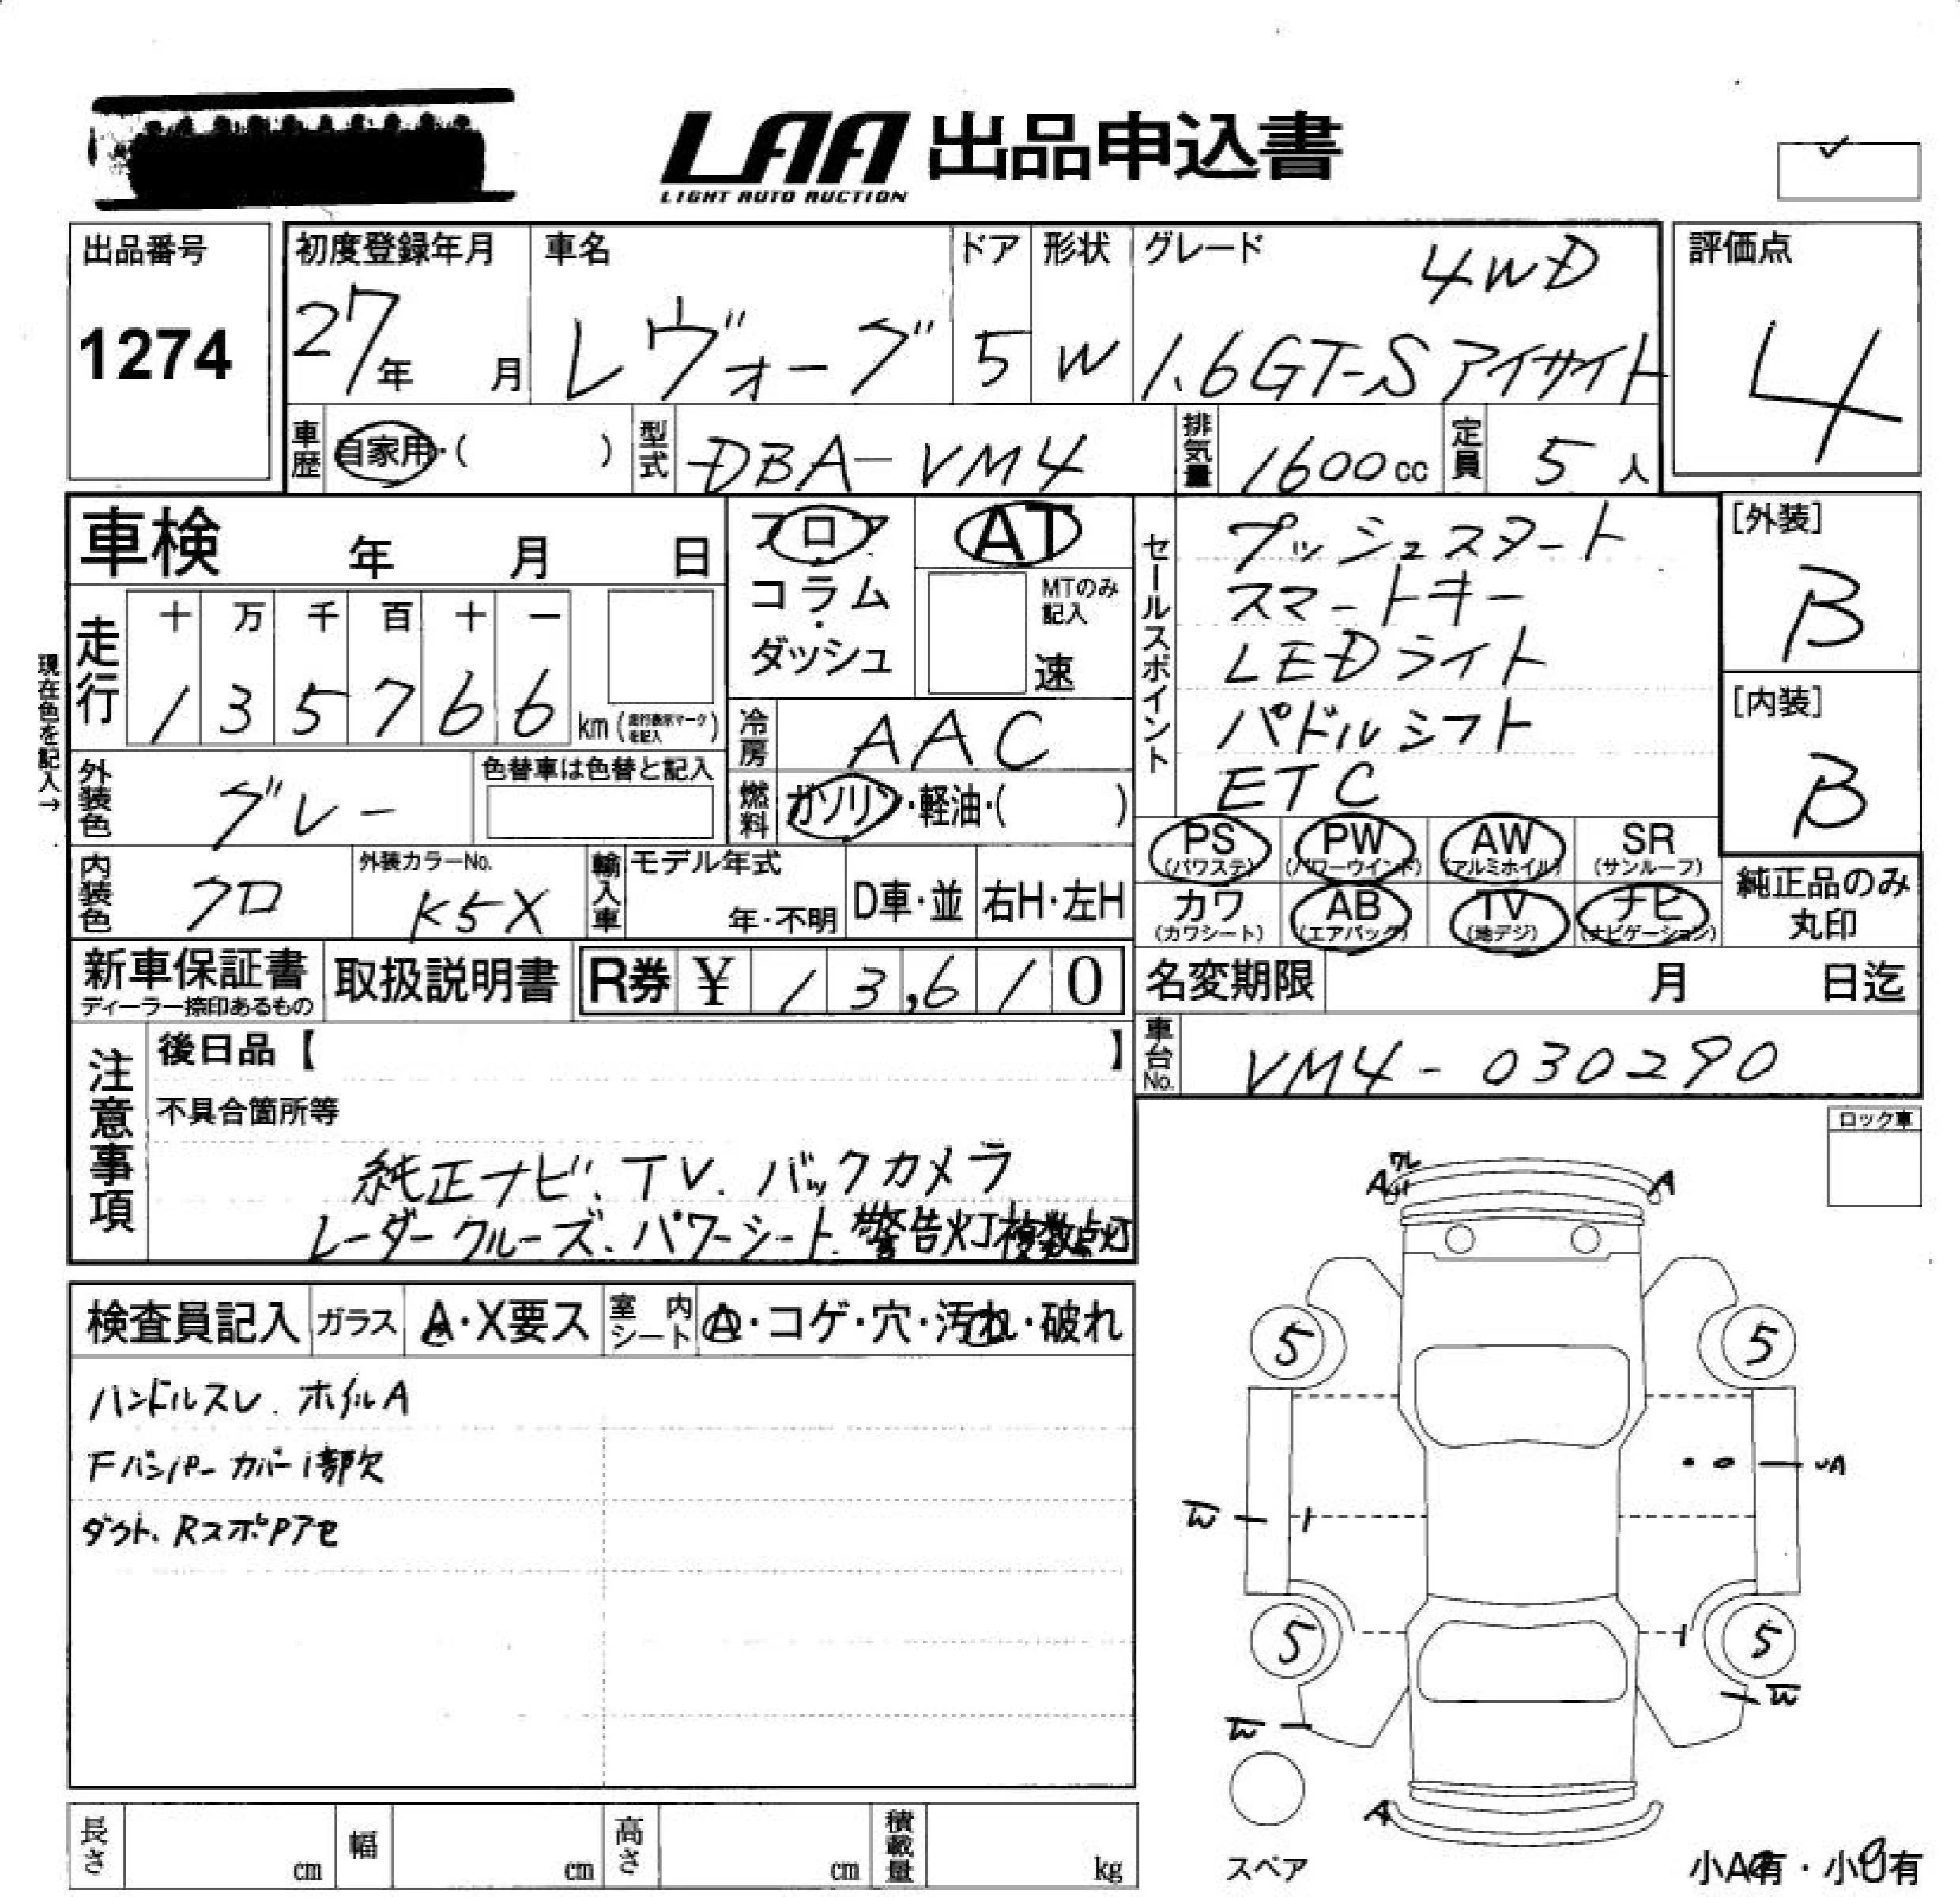 LAA 出品申込書
LIGHT AUTO AUCTION
出品番号
1274
初度登録年月
27年 月
車名
レヴォーグ
ドア
5
形状
W
グレード
4WD
1.6GT-Sアイサイト
評価点
4
車歴
自家用・( )
型式
DBA-VM4
排気量
1600cc
定員
5人
車検 年 月 日
フロア
コラム
・
ダッシュ
AT
MTのみ
記入
速
現在色を記入→
走行
十 万 千 百 十 一
1 3 5 7 6 6 km(走行表示マークを記入)
冷房
AAC
燃料
ガソリン・軽油・( )
外装色
グレー
色替車は色替と記入
内装色
クロ
外装カラーNo.
K5X
輸入車
モデル年式
年・不明
D車・並
右H・左H
セールスポイント
プッシュスタート
スマートキー
LEDライト
パドルシフト
ETC
[外装]
B
[内装]
B
PS
(パワステ)
PW
(パワーウインド)
AW
(アルミホイル)
SR
(サンルーフ)
カワ
(カワシート)
AB
(エアバッグ)
TV
(地デジ)
ナビ
(ナビゲーション)
純正品のみ
丸印
新車保証書
ディーラー捺印あるもの
取扱説明書
R券 ¥ 13,610
名変期限 月 日迄
車台No.
VM4-030290
注意事項
後日品【 】
不具合箇所等
純正ナビ、TV、バックカメラ
レーダークルーズ、パワーシート、警告灯複数点灯
ロック車
検査員記入
ガラス
A・X要ス
室内シート
A・コゲ・穴・汚れ・破れ
ハンドルスレ、ホイルA
Fバンパーカバー1部欠
ダクト、RスポPアセ
A ワレ A
5 5
UA
W
5 5
W
W
A
スペア
小A有・小U有
長さ cm
幅 cm
高さ cm
積載量 kg